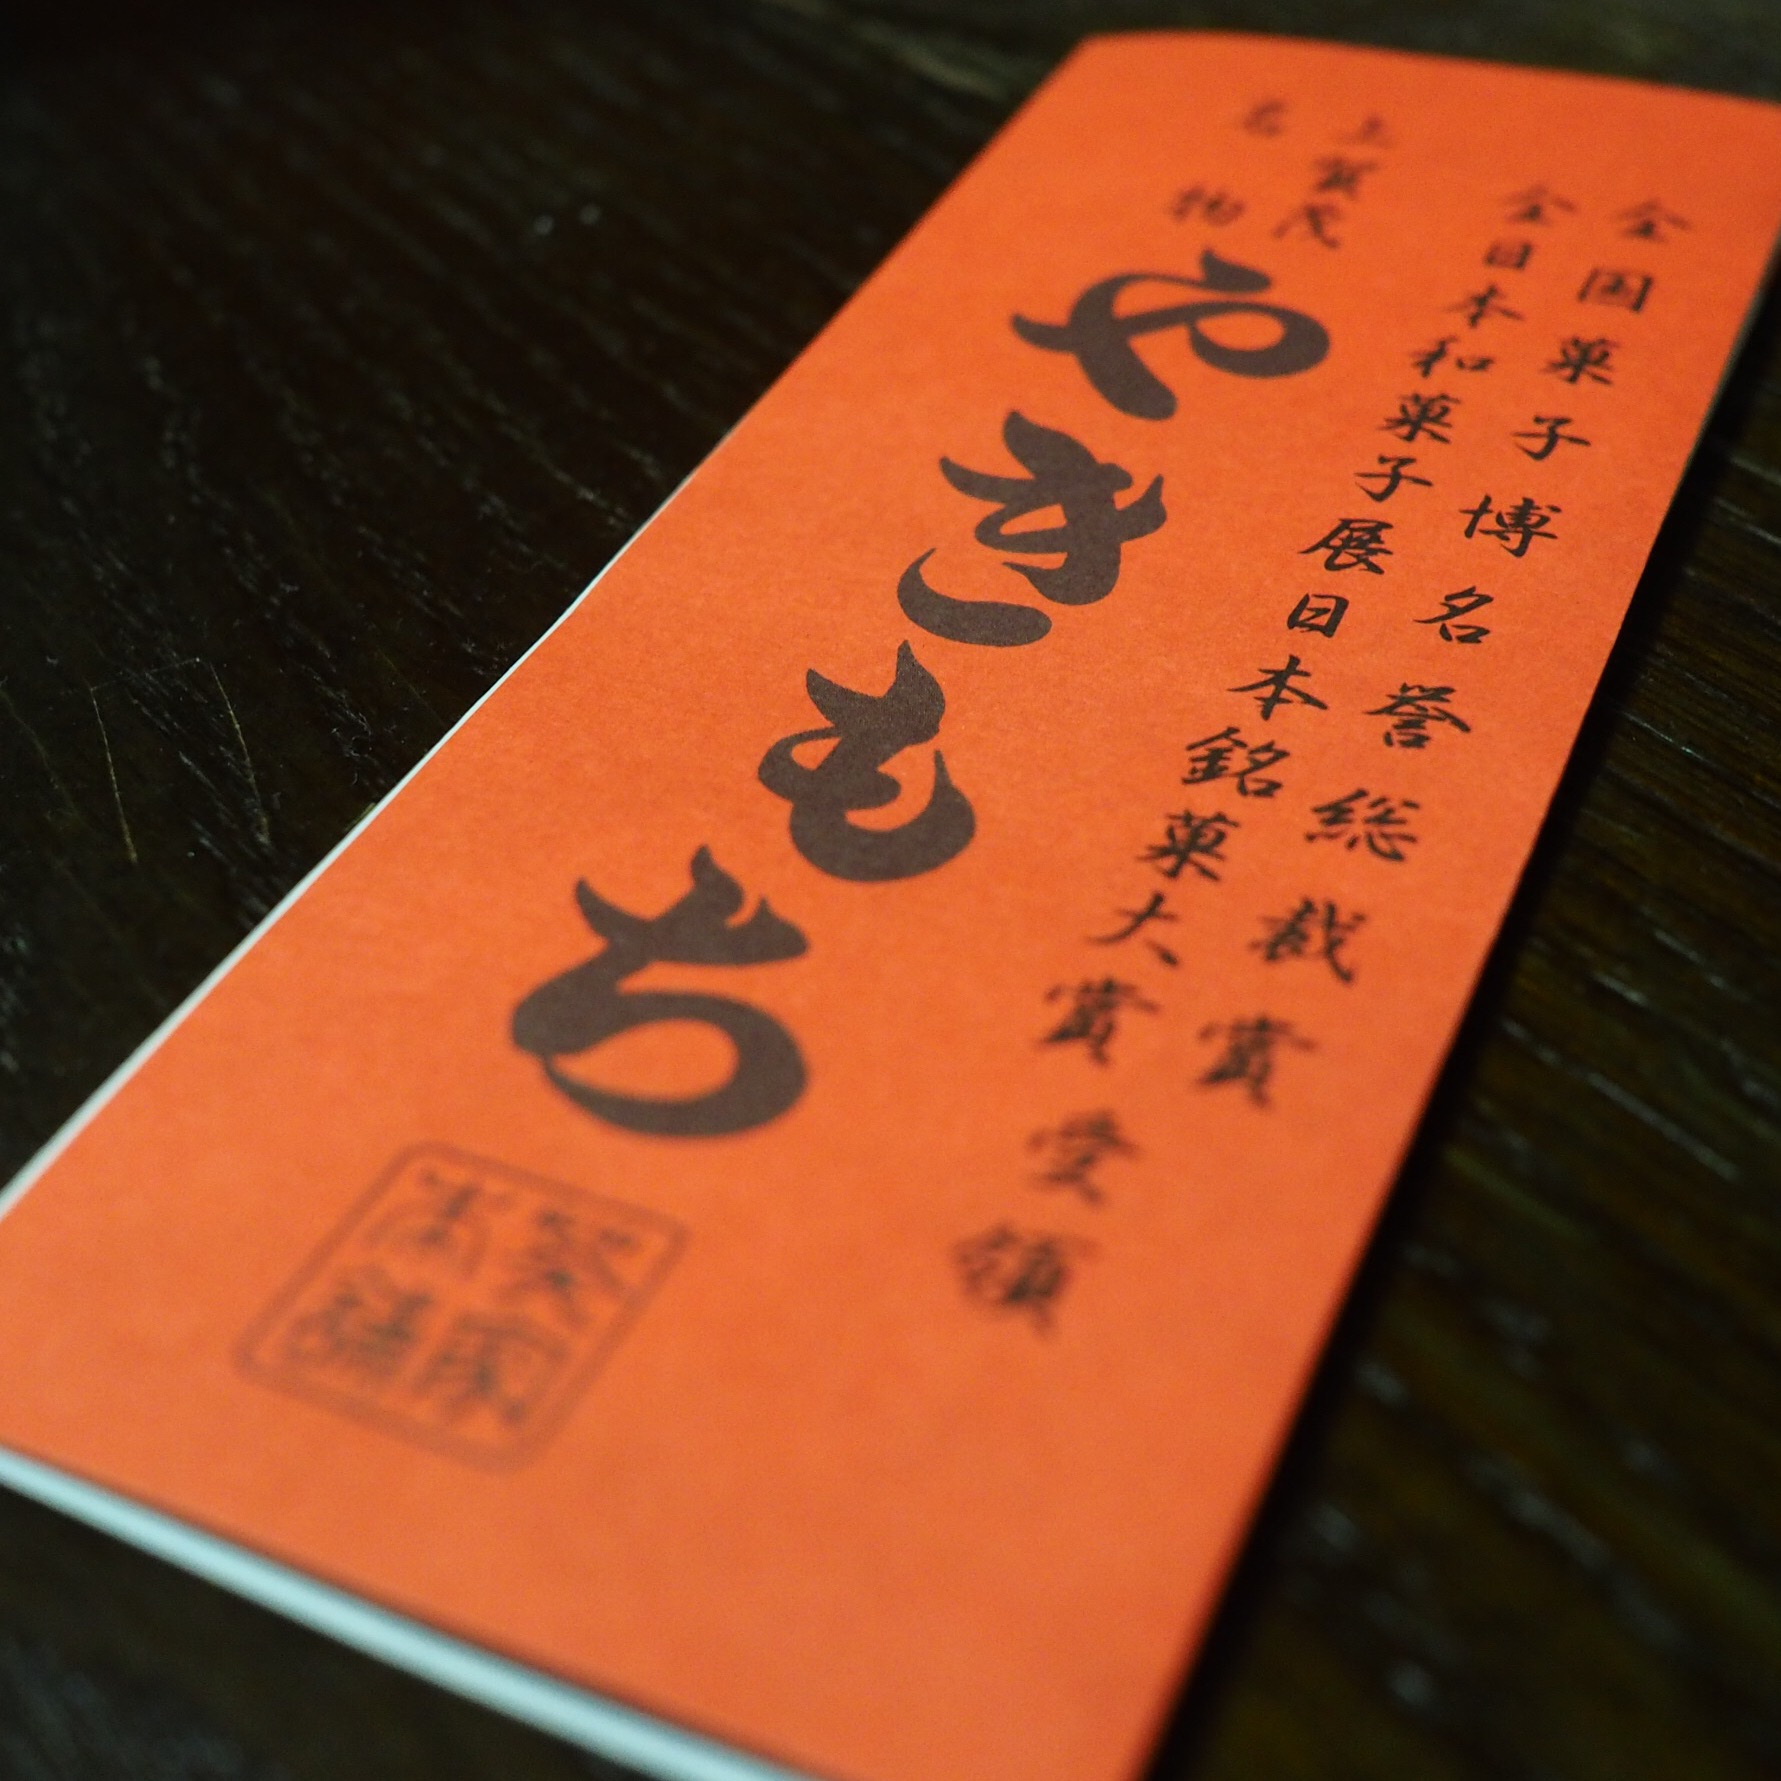 全国菓子博名誉総裁賞
全日本和菓子展日本銘菓大賞受領
上賀茂
名物
やきもち
葵家
本舗